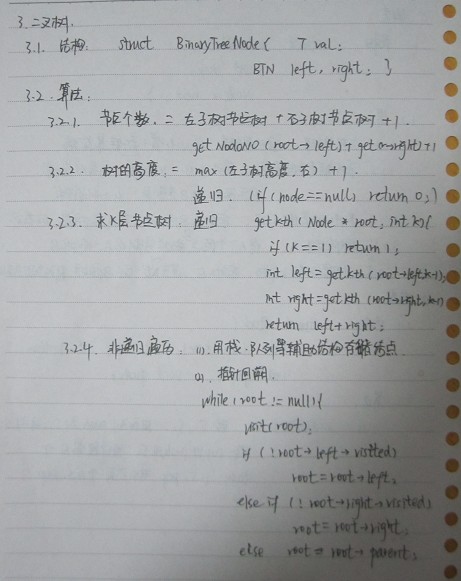 3. 二叉树.
3.1. 结构: struct BinaryTreeNode { T val;
BTN left, right; }
3.2. 算法:
3.2.1. 节点个数. = 左子树节点树 + 右子树节点树 + 1.
getNodeNO (root→left) + get(→right)+1
3.2.2. 树的高度. = max (左子树高度, 右) + 1.
递归. (if (node==null) return 0;)
3.2.3. 求K层节点树. 递归 getkth (Node * root, int k){
if (k==1) return 1;
int left = getkth (root→left, k-1);
int right = getkth (root→right, k-1)
return left + right;
3.2.4. 非递归遍历: (1). 用栈. 队列等辅助结构存储结点
(2). 指针回溯.
while (root != null) {
visit(root);
if (! root→left→visited)
root = root→left;
else if (! root→right→visited)
root = root→right;
else root = root→parent;